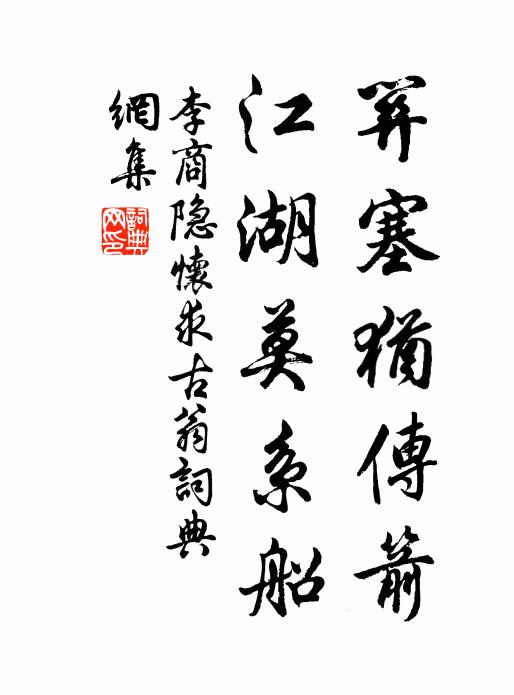 关塞猶傳箭
江湖莫系船
李商隐懷求古翁詞典
網集
詞典
网印